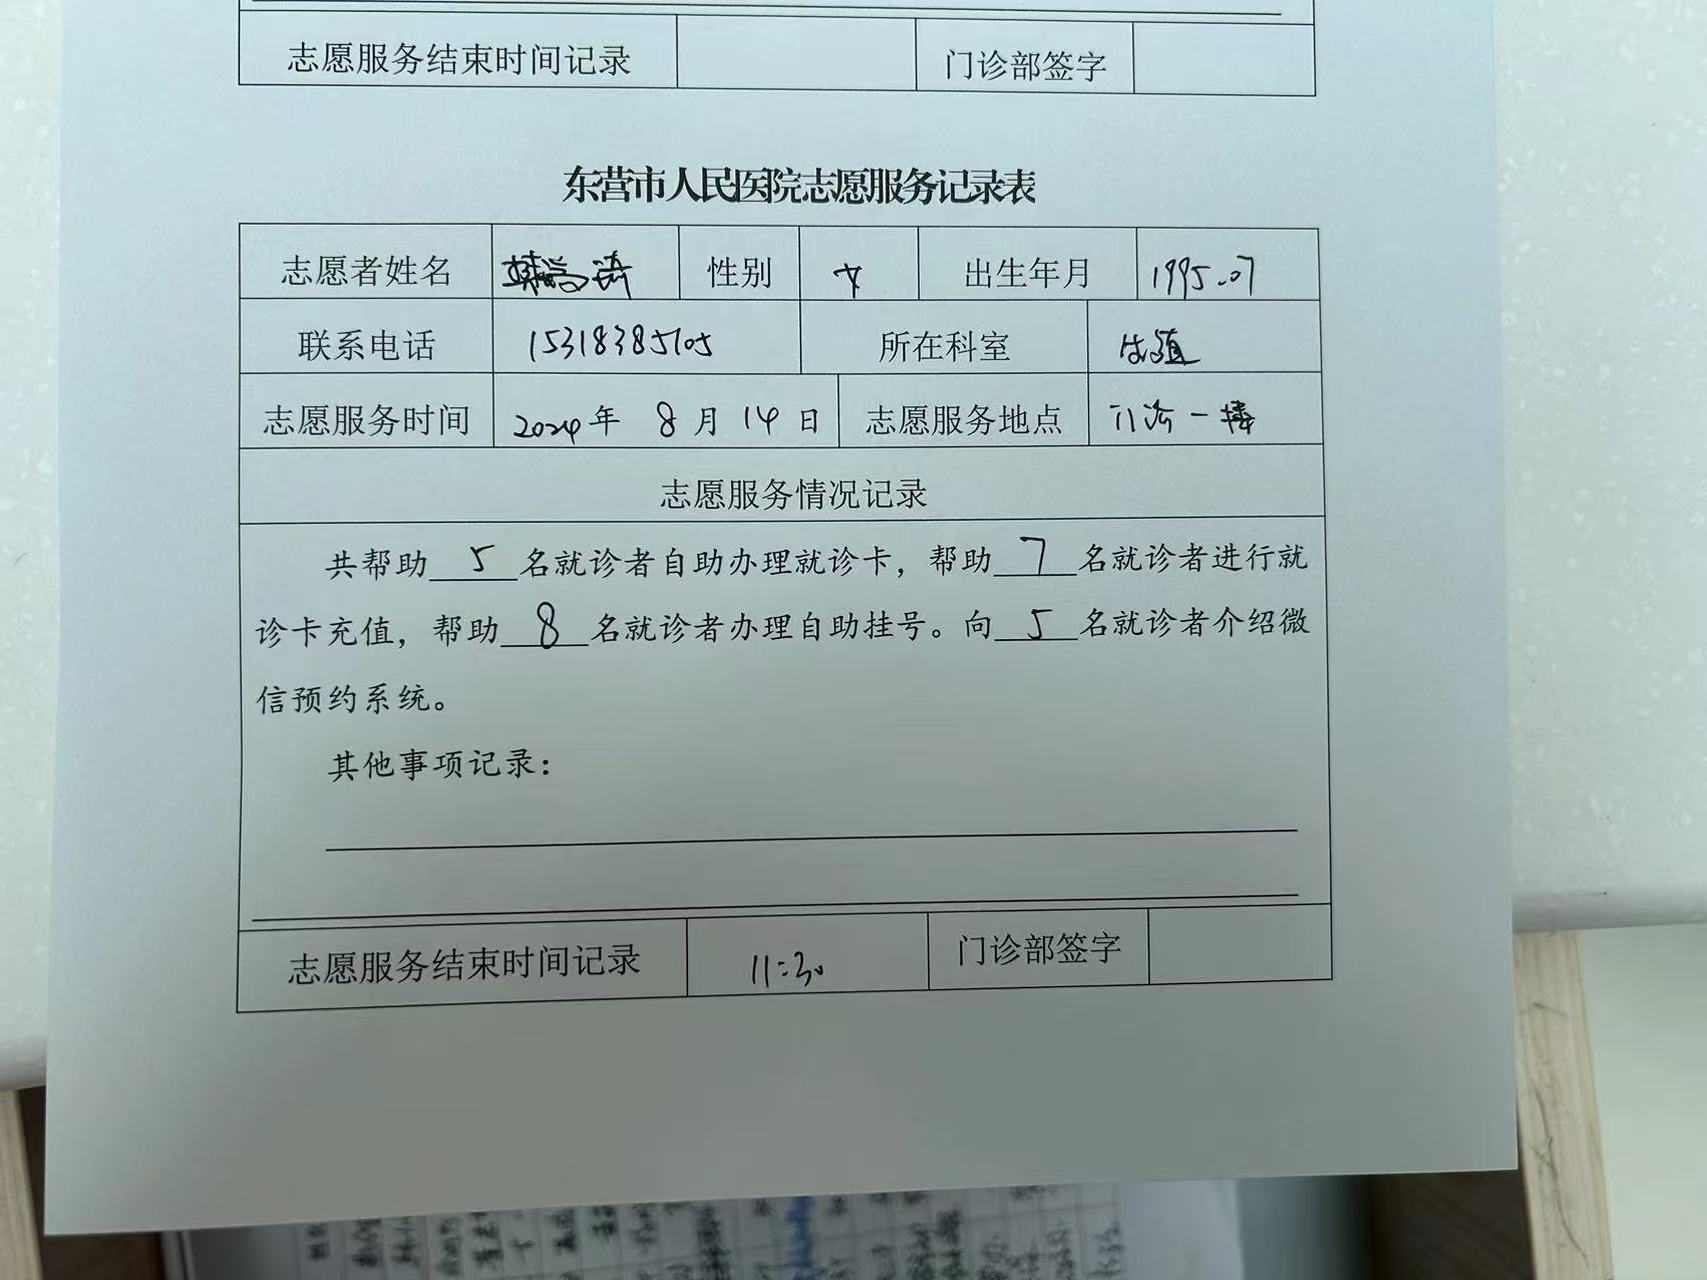 志愿服务结束时间记录 门诊部签字
东营市人民医院志愿服务记录表
志愿者姓名 性别 女 出生年月 1995.07
联系电话 15318385705 所在科室 生殖
志愿服务时间 2024年 8月 14日 志愿服务地点 门诊一楼
志愿服务情况记录
共帮助 5 名就诊者自助办理就诊卡，帮助 7 名就诊者进行就
诊卡充值，帮助 8 名就诊者办理自助挂号。向 5 名就诊者介绍微
信预约系统。
其他事项记录：
志愿服务结束时间记录 11:30 门诊部签字